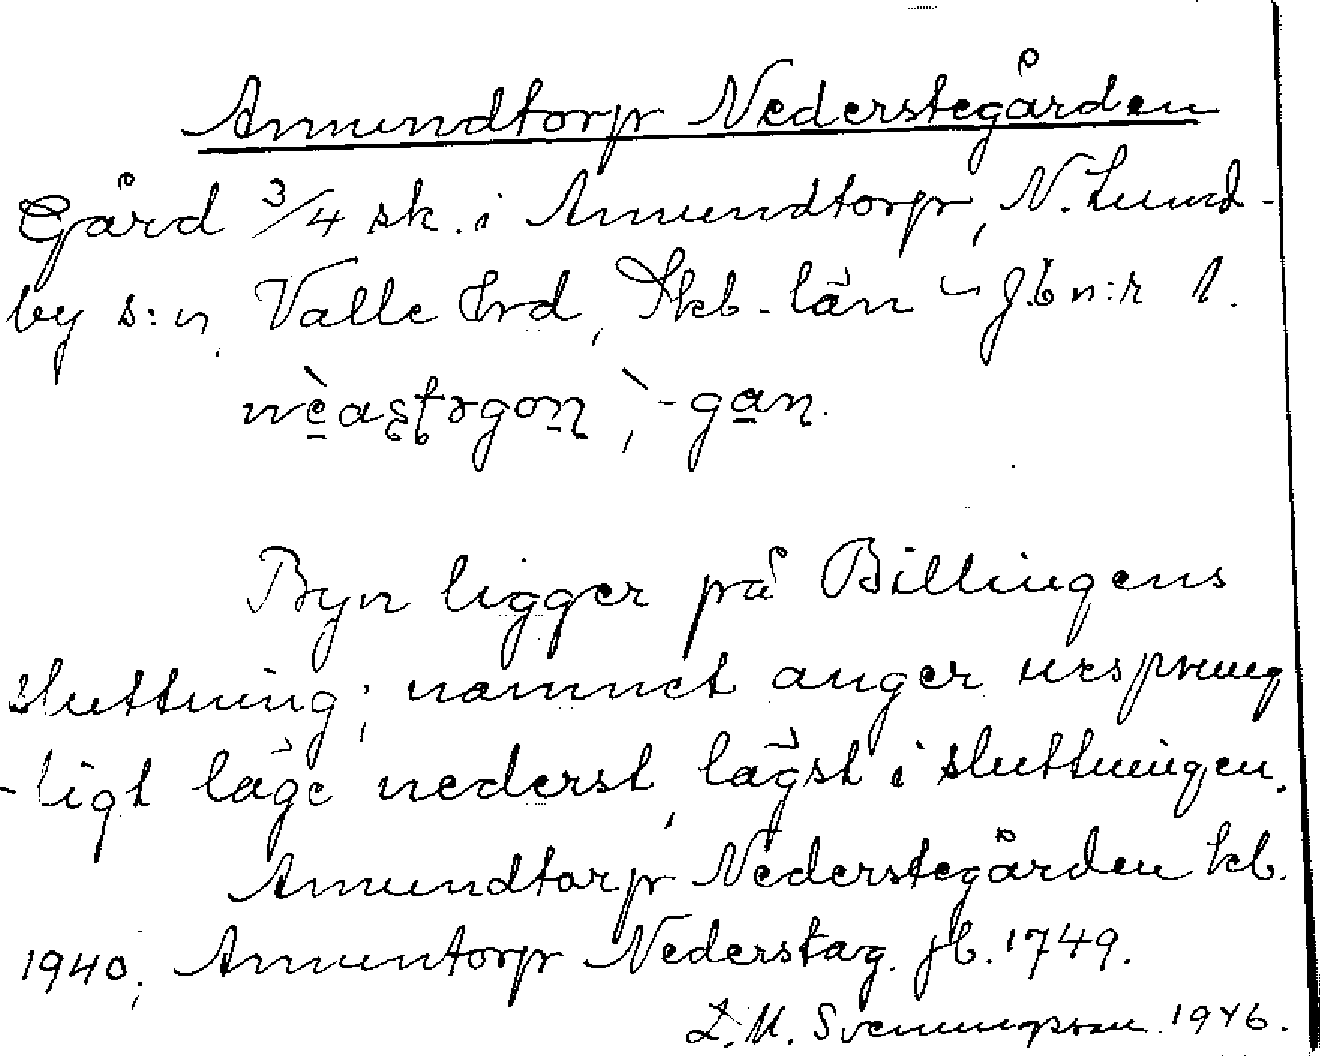 Amundtorp Nederstegården
Gård 3/4 sk. i Amundtorp, N. Lund-
by s:n, Valle hrd, Skb. län – Jb n:r 1.
Byn ligger på Billingens
sluttning; namnet anger ursprung
-ligt läge nederst, lägst i sluttningen.
Amundtorp Nederstegården kb.
1940; Amuntorp Nederstag. jb. 1749.
L. M. Svenungsson 1946.